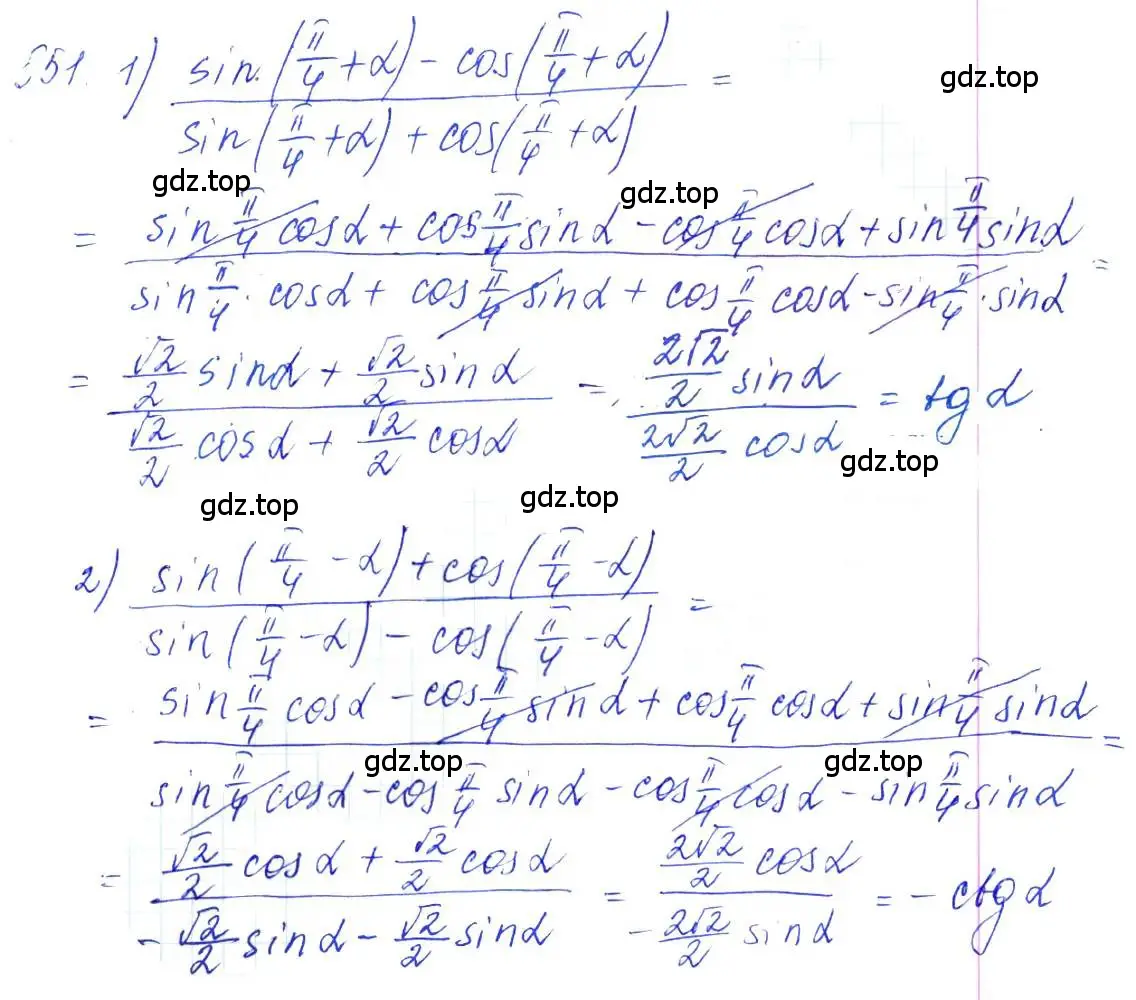 551. 1) \frac{sin(\frac{π}{4}+α) - cos(\frac{π}{4}+α)}{sin(\frac{π}{4}+α) + cos(\frac{π}{4}+α)} =
gdz.top
gdz.top gdz.top
= \frac{sin\frac{π}{4} cosα + cos\frac{π}{4} sinα - cos\frac{π}{4} cosα + sin\frac{π}{4} sinα}{sin\frac{π}{4} · cosα + cos\frac{π}{4} sinα + cos\frac{π}{4} cosα - sin\frac{π}{4} · sinα} =
= \frac{\frac{√2}{2} sinα + \frac{√2}{2} sinα}{\frac{√2}{2} cosα + \frac{√2}{2} cosα} = \frac{\frac{2√2}{2} sinα}{\frac{2√2}{2} cosα} = tg α
gdz.top
gdz.top gdz.top
2) \frac{sin(\frac{π}{4} - α) + cos(\frac{π}{4} - α)}{sin(\frac{π}{4} - α) - cos(\frac{π}{4} - α)} =
= \frac{sin\frac{π}{4} cosα - cos\frac{π}{4} sinα + cos\frac{π}{4} cosα + sin\frac{π}{4} sinα}{sin\frac{π}{4} cosα - cos\frac{π}{4} sinα - cos\frac{π}{4} cosα - sin\frac{π}{4} sinα} =
gdz.top gdz.top
= \frac{\frac{√2}{2} cosα + \frac{√2}{2} cosα}{-\frac{√2}{2} sinα - \frac{√2}{2} sinα} = \frac{\frac{2√2}{2} cosα}{-\frac{2√2}{2} sinα} = - ctg α